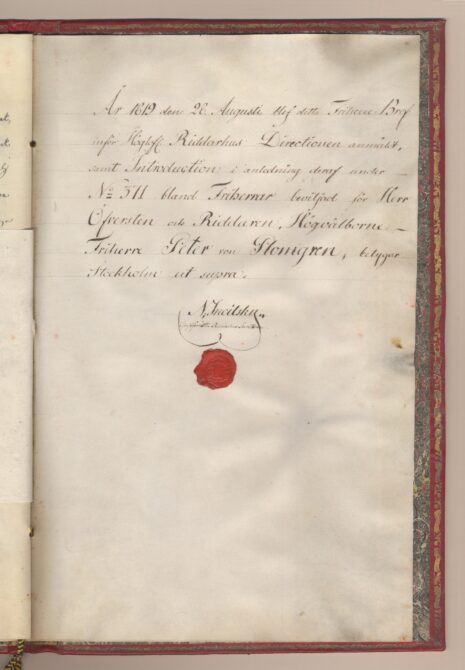 År 1819 den 28 Augusti blef detta Friherre-Bref
inför Höglofl. Riddarhus Directionen anmäldt,
samt Introduction i anledning deraf under
No 311 bland Friherrar beviljad för Herr
Öfversten och Riddaren, Högvälborne
Friherre Peter von Blomgren, betygar
Stockholm ut supra.